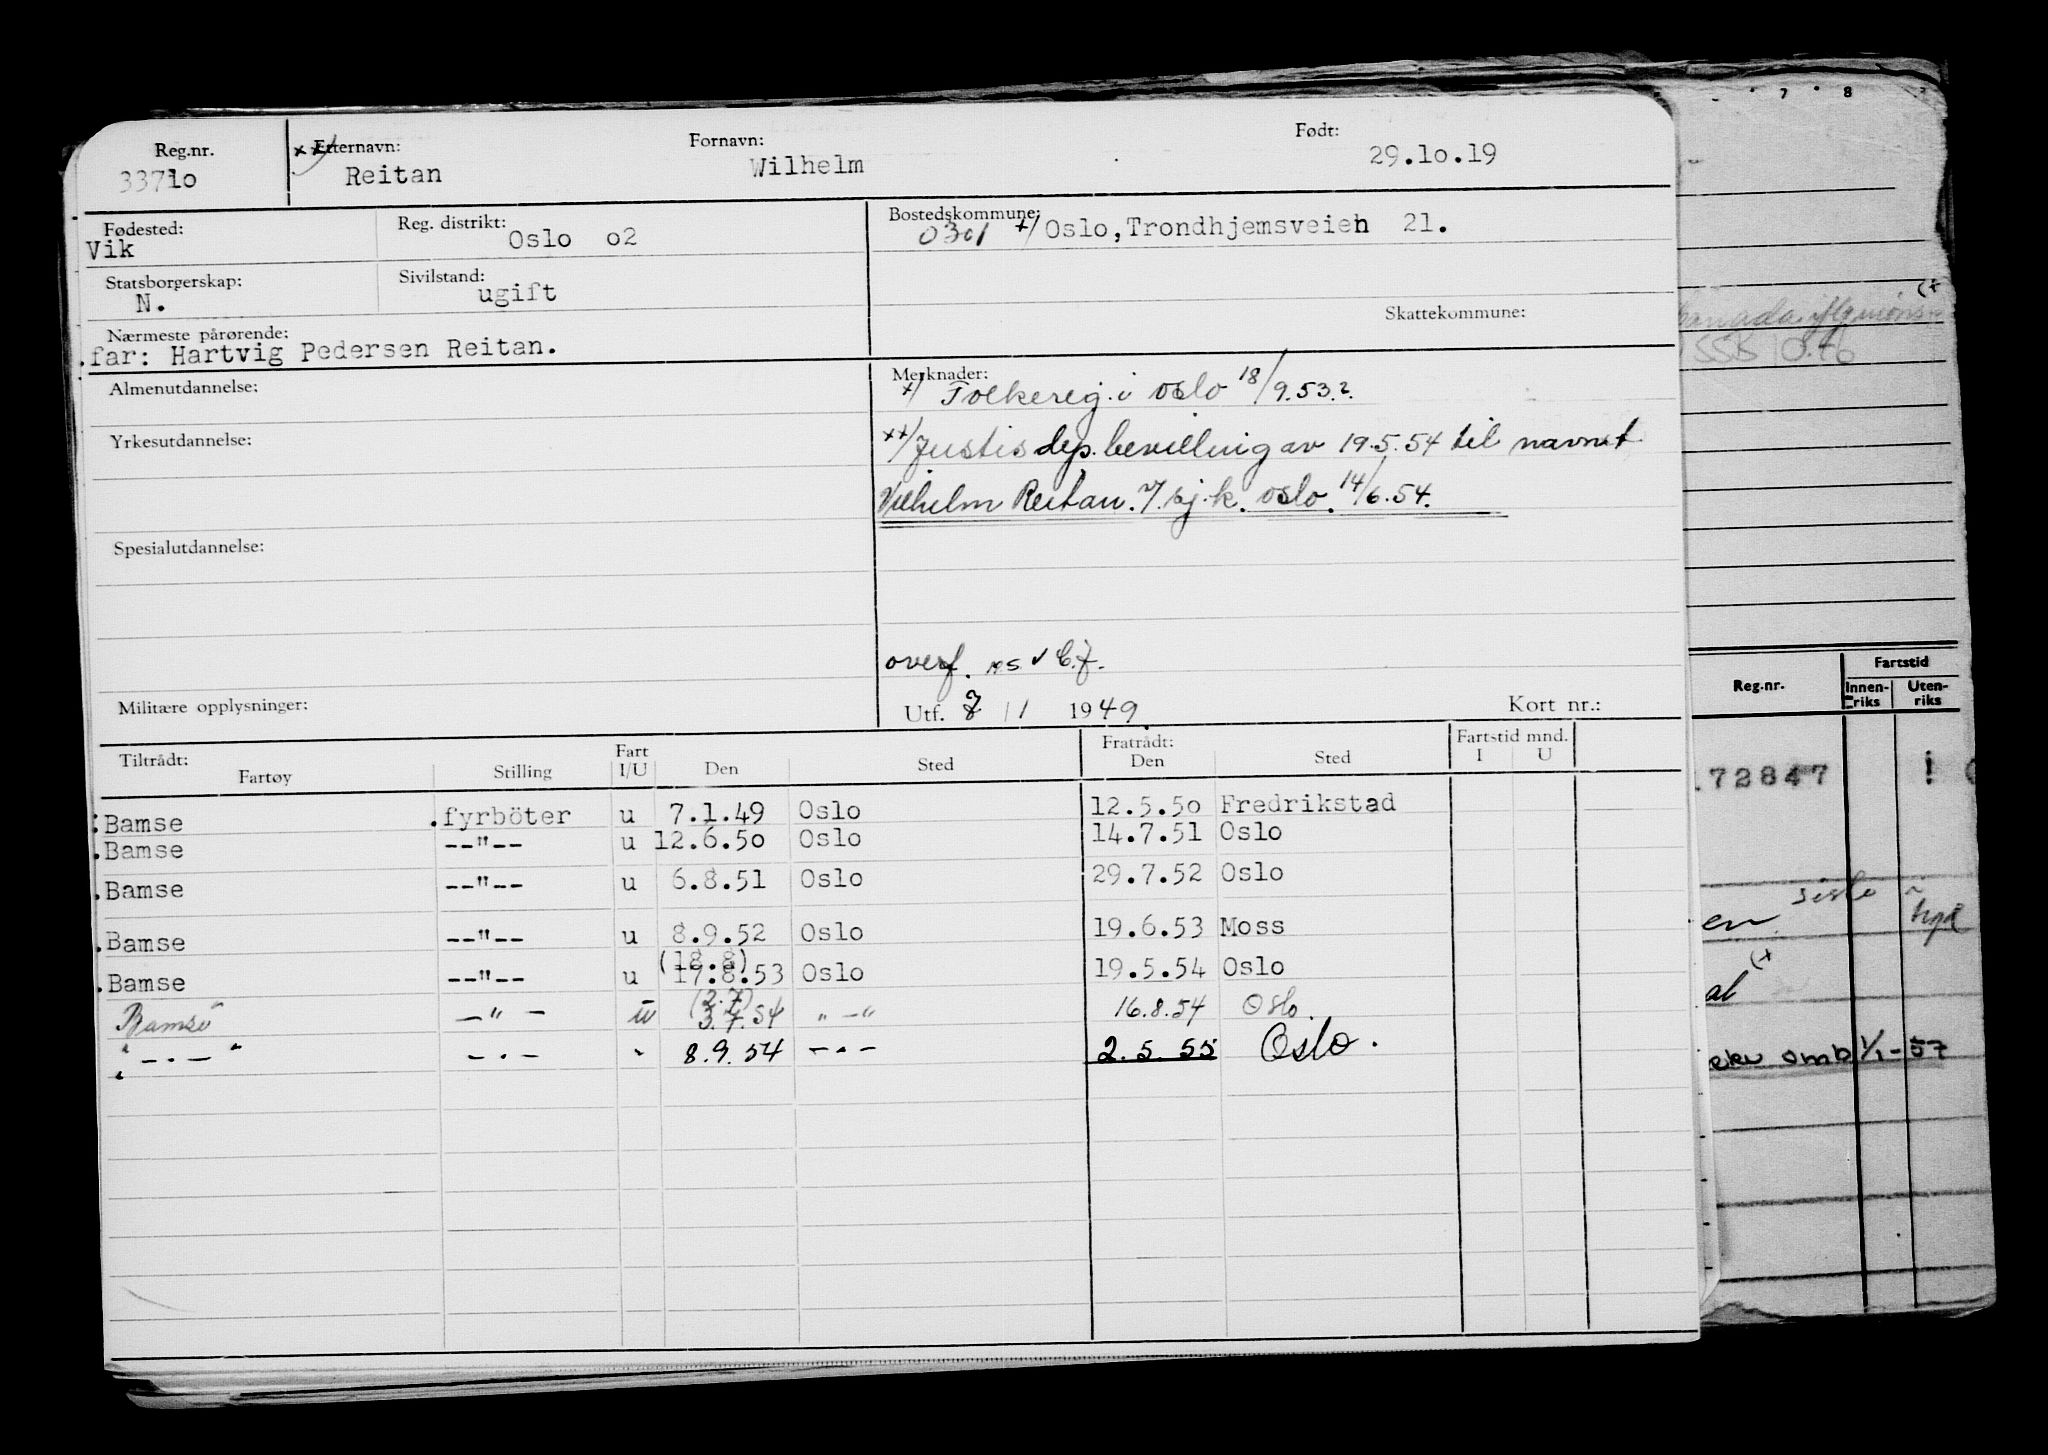 Reg.nr. xx/ Etternavn: Fornavn: Født:
3371o Reitan Wilhelm 29.1o.19
Fødested: Reg. distrikt: Bostedskommune:
Vik Oslo o2 0301 x/ Oslo,Trondhjemsveien 21.
Statsborgerskap: Sivilstand:
N. ugift
Nærmeste pårørende: Skattekommune:
far: Hartvig Pedersen Reitan.
Almenutdannelse: Merknader:
x/ Folkereg. i Oslo 18/9.53.
Yrkesutdannelse:
xx/ Justisdep. bevilling av 19.5.54 til navnet
Vilhelm Reitan. oslo. 14/6.54.
Spesialutdannelse:
overf.
Militære opplysninger: Utf. 7 / 1 1949. Kort nr.:
Tiltrådt: Fart Fratrådt: Fartstid mnd.
Fartøy Stilling I/U Den Sted Den Sted I U
Bamse fyrböter u 7.1.49 Oslo 12.5.5o Fredrikstad
Bamse --"-- u 12.6.5o Oslo 14.7.51 Oslo
Bamse --"-- u 6.8.51 Oslo 29.7.52 Oslo
Bamse --"-- u 8.9.52 Oslo 19.6.53 Moss
(18.8)
Bamse --"-- u 17.8.53 Oslo 19.5.54 Oslo
(2.7)
Bamse -"- u 3.7.54 "-" 16.8.54 Oslo.
"-.-" -.- " 8.9.54 -"- 2.5.55 Oslo.
7 8
(x
Canada
SSB
Fartstid
Reg.nr. Innen-riks Uten-riks
72847 !
en.
(x
al
omb 1/1-57